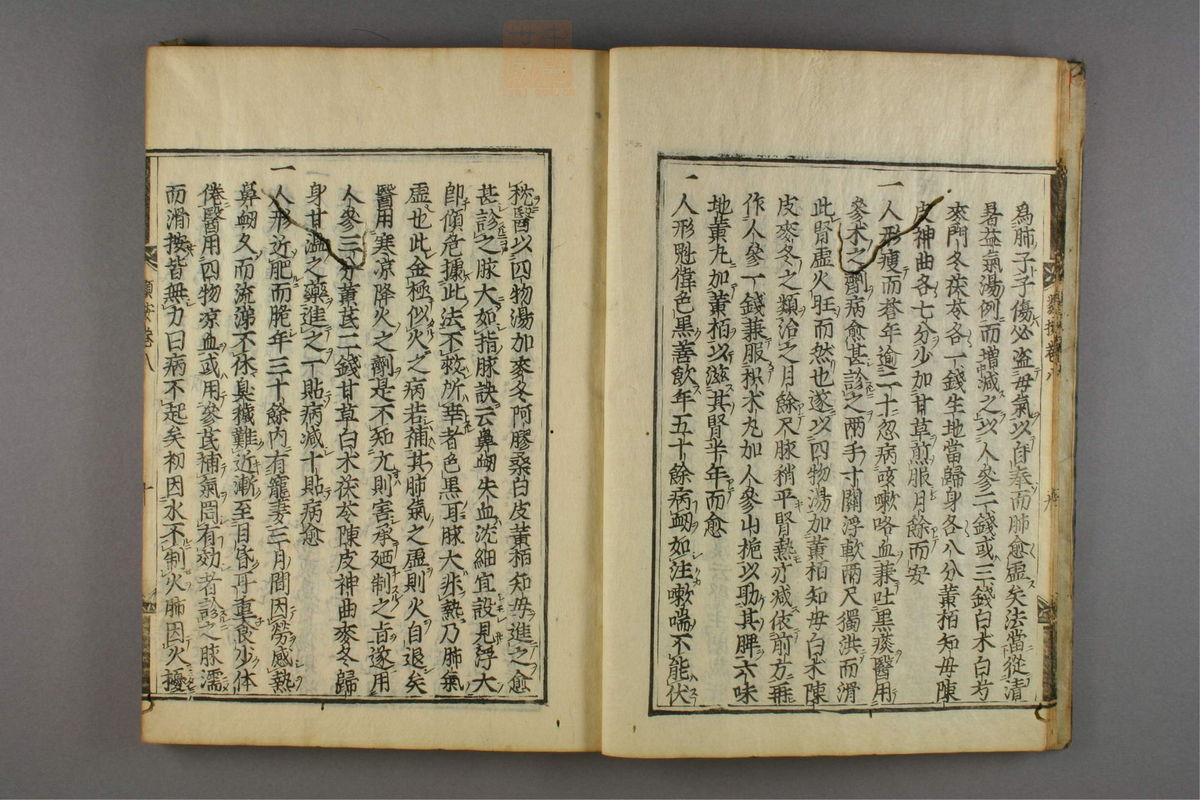 爲肺子子傷必盗母氣以自奉而肺愈虚矣法當從清
暑益氣湯例而増减之以人參二錢或三錢白术白芍
麥門冬茯苓各一錢生地當歸身各八分黄栢知母陳
皮神曲各七分少加甘草煎服月餘而安
一人形瘦而蒼年逾二十忽病咳嗽咯血兼吐黒痰醫用
參术之劑病愈甚診之兩手寸關浮軟兩尺獨洪而滑
此腎虚火旺而然也遂以四物湯加黄栢知母白术陳
皮麥冬之類治之月餘尺脉稍平腎熱亦减依前方再
作人參一錢兼服枳术丸加人參山梔以助其脾六味
地黄丸加黄栢以滋其腎半年而愈
一人形魁偉色黒善飲年五十餘病衂如注嗽喘不能伏
枕醫以四物湯加麥冬阿膠桑白皮黄栢知母進之愈
甚診之脉大如指脉訣云鼻衂失血沈細宜設見浮大
卽傾危據此法不救所幸者色黒耳脉大非熱乃肺氣
虚也此金極似火之病若補其肺氣之虚則火自退矣
醫用寒凉降火之劑是不知亢則害承廼制之旨遂用
人參三分黄芪二錢甘草白术茯苓陳皮神曲麥冬歸
身甘溫之藥進之一貼病减十貼病愈
一人形近肥而脆年三十餘内有寵妾三月間因勞感熱
鼻衂久而流涕不休臭穢難近漸至目昏耳重食少體
倦醫用四物凉血或用參芪補氣罔有効者診之脉濡
而滑按皆無力曰病不起矣初因水不制火肺因火擾